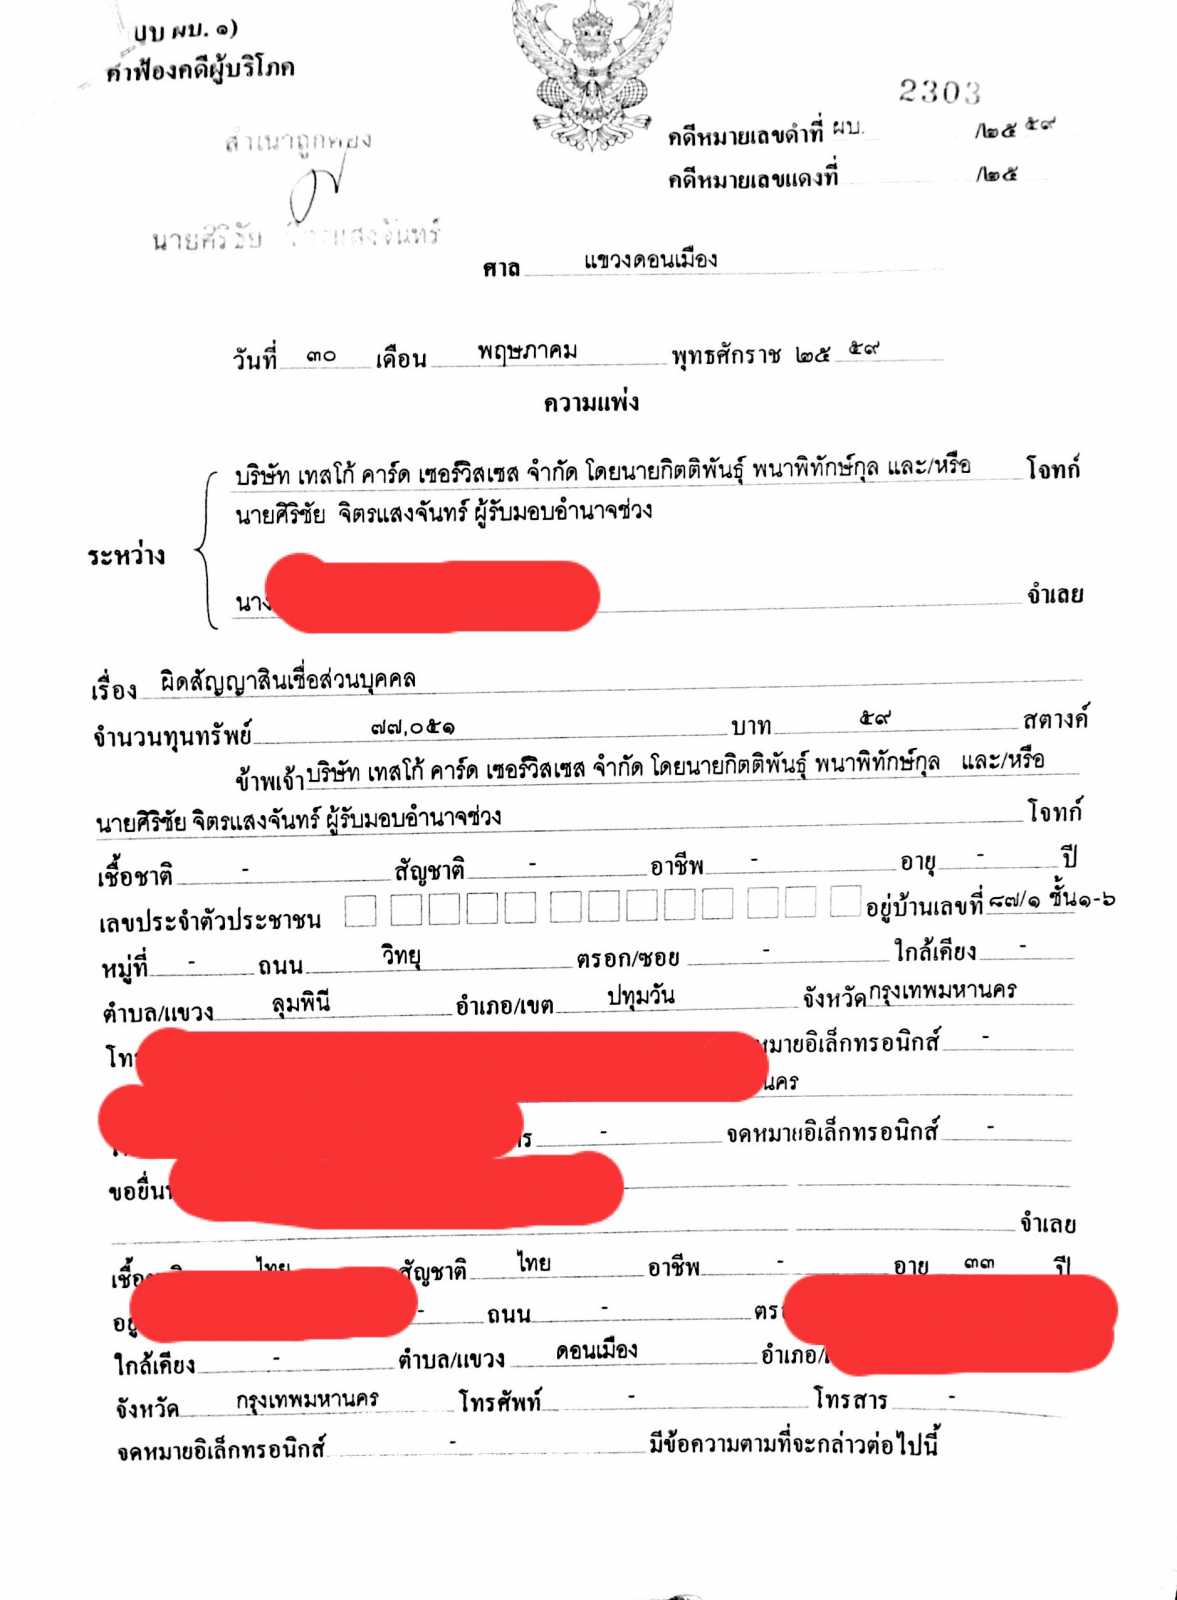 ผบ. ๑)
คำฟ้องคดีผู้บริโภค
2303
สำเนาถูกต้อง
คดีหมายเลขดำที่ ผบ. /๒๕ ๕๙
คดีหมายเลขแดงที่ /๒๕
นายศิริชัย จิตรแสงจันทร์
ศาล แขวงดอนเมือง
วันที่ ๓๐ เดือน พฤษภาคม พุทธศักราช ๒๕ ๕๙
ความแพ่ง
บริษัท เทสโก้ คาร์ด เซอร์วิสเซส จำกัด โดยนายกิตติพันธุ์ พนาพิทักษ์กุล และ/หรือ โจทก์
นายศิริชัย จิตรแสงจันทร์ ผู้รับมอบอำนาจช่วง
ระหว่าง
นาง จำเลย
เรื่อง ผิดสัญญาสินเชื่อส่วนบุคคล
จำนวนทุนทรัพย์ ๗๗,๐๕๑ บาท ๕๙ สตางค์
ข้าพเจ้า บริษัท เทสโก้ คาร์ด เซอร์วิสเซส จำกัด โดยนายกิตติพันธุ์ พนาพิทักษ์กุล และ/หรือ
นายศิริชัย จิตรแสงจันทร์ ผู้รับมอบอำนาจช่วง โจทก์
เชื้อชาติ - สัญชาติ - อาชีพ - อายุ - ปี
เลขประจำตัวประชาชน อยู่บ้านเลขที่ ๘๗/๑ ชั้น๑-๖
หมู่ที่ - ถนน วิทยุ ตรอก/ซอย - ใกล้เคียง -
ตำบล/แขวง ลุมพินี อำเภอ/เขต ปทุมวัน จังหวัด กรุงเทพมหานคร
โทร หมายอิเล็กทรอนิกส์ -
นคร
ร - จดหมายอิเล็กทรอนิกส์ -
ขอยื่น
จำเลย
ไทย สัญชาติ ไทย อาชีพ - อายุ ๓๓ ปี
อยู่ - ถนน - ตร
ใกล้เคียง - ตำบล/แขวง ดอนเมือง อำเภอ/
จังหวัด กรุงเทพมหานคร โทรศัพท์ - โทรสาร -
จดหมายอิเล็กทรอนิกส์ - มีข้อความตามที่จะกล่าวต่อไปนี้